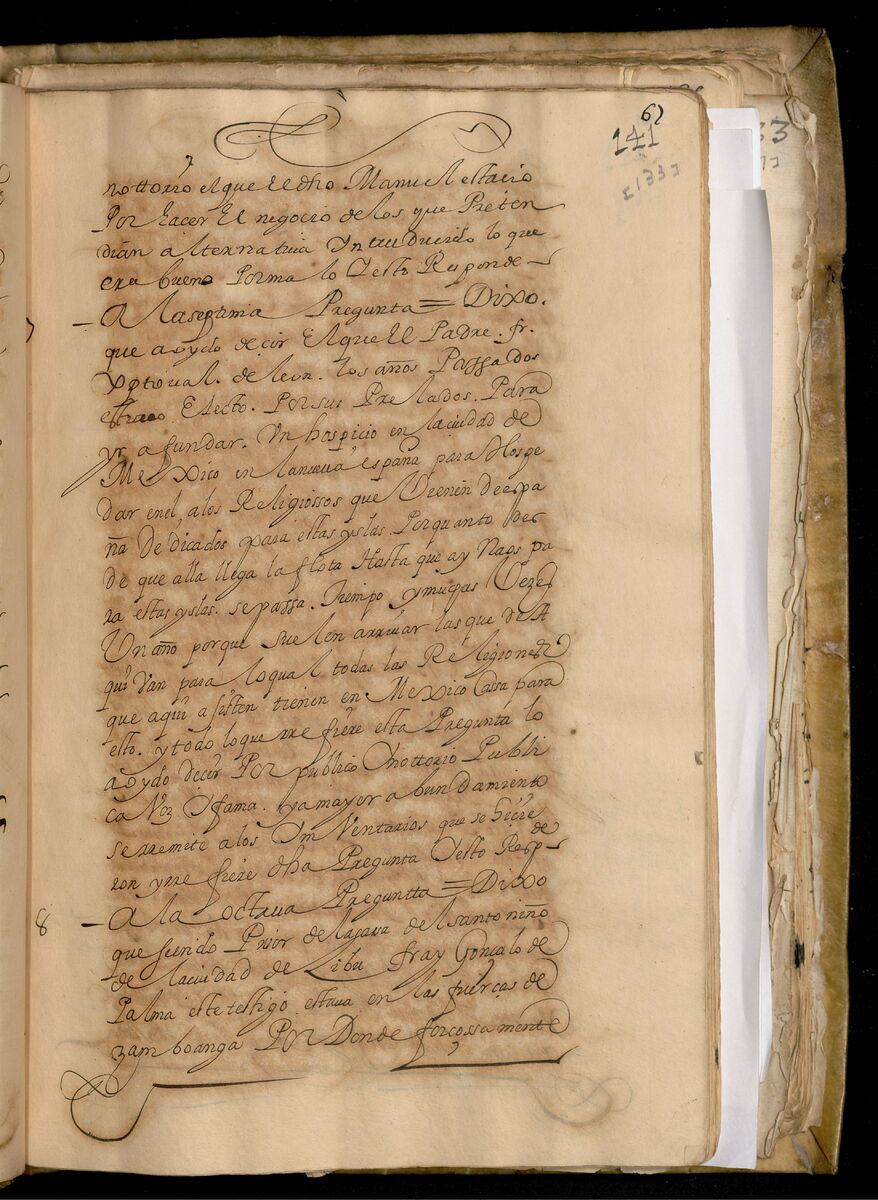 61
141
[133]
nottorio el que El dho Manuel estacio
Por hacer El negocio de los que Preten
dian alternatiua Yntruducido lo que
era bueno Por malo Y esto Responde
7
A la septima Pregunta = Dixo.
que a oydo decir El que El Padre. fr.
xptoual. de leon. los años Passados
Electo. Por sus Prelados. Para
yr a fundar. Vn hospicio en la ciudad de
Mexico en la nueua españa para Hospe
dar en el, a los Religiossos que Vienen de espa
ña De dicados para estas yslas Porquanto des
de que alla llega la flota Hasta que ay Naos pa
ra estas yslas. se passa. Tiempo y muchas Vezes
Un año porque suelen arriuar las que de A
qui Van para lo qual todas las Religiones
que aqui asisten tienen en Mexico Cassa para
esto. y todo lo que rre fiere esta Pregunta lo
a oydo decir Por publico Y nottorio Publi
ca Voz Y fama. y a mayor abundamiento
se rremite a los Ynventarios que se hicie
ron y rre fiere dha Pregunta Y esto Respde
8
A la octaua Preguntta = Dixo
que siendo Prior de la cassa del santo niño
de la ciudad de Zibu fray Gonçalo de
Palma este testigo estaua en las fuerças de
zamboanga Por Donde forçossamente